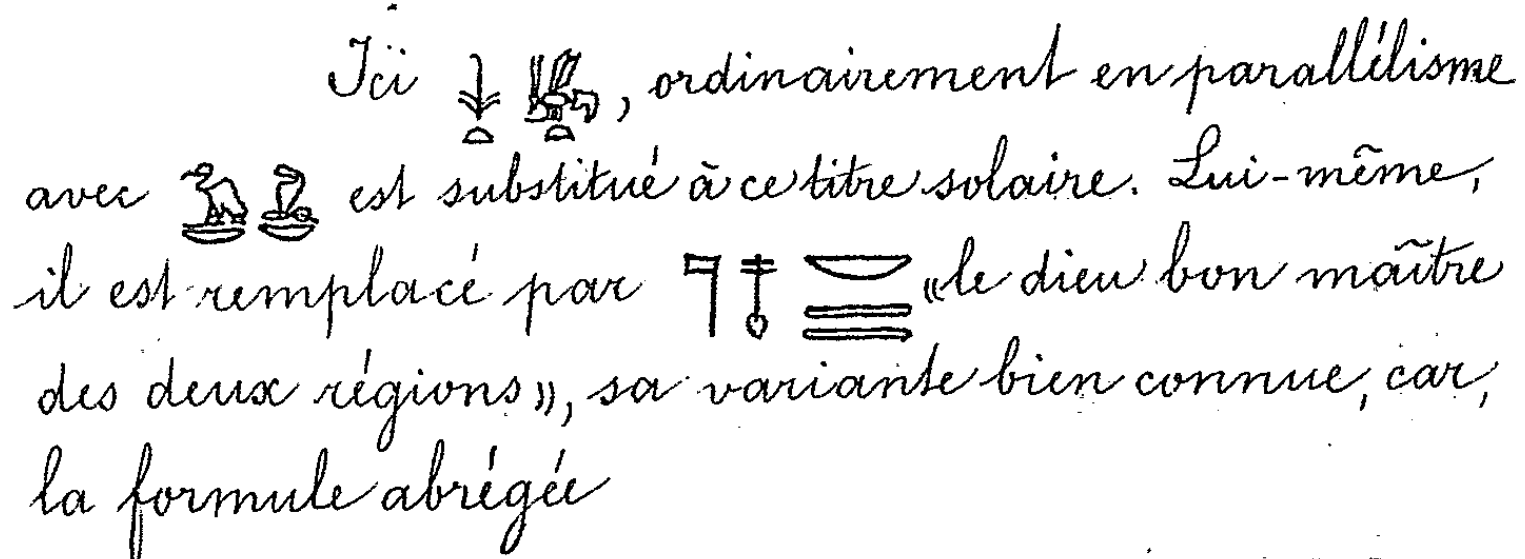 Ici 𓇓𓏏 𓆤𓏏, ordinairement en parallélisme
avec 𓅒𓆗 est substitué à ce titre solaire. Lui-même,
il est remplacé par 𓊹𓄤𓎟𓇿𓇿 «le dieu bon maître
des deux régions», sa variante bien connue, car,
la formule abrégée